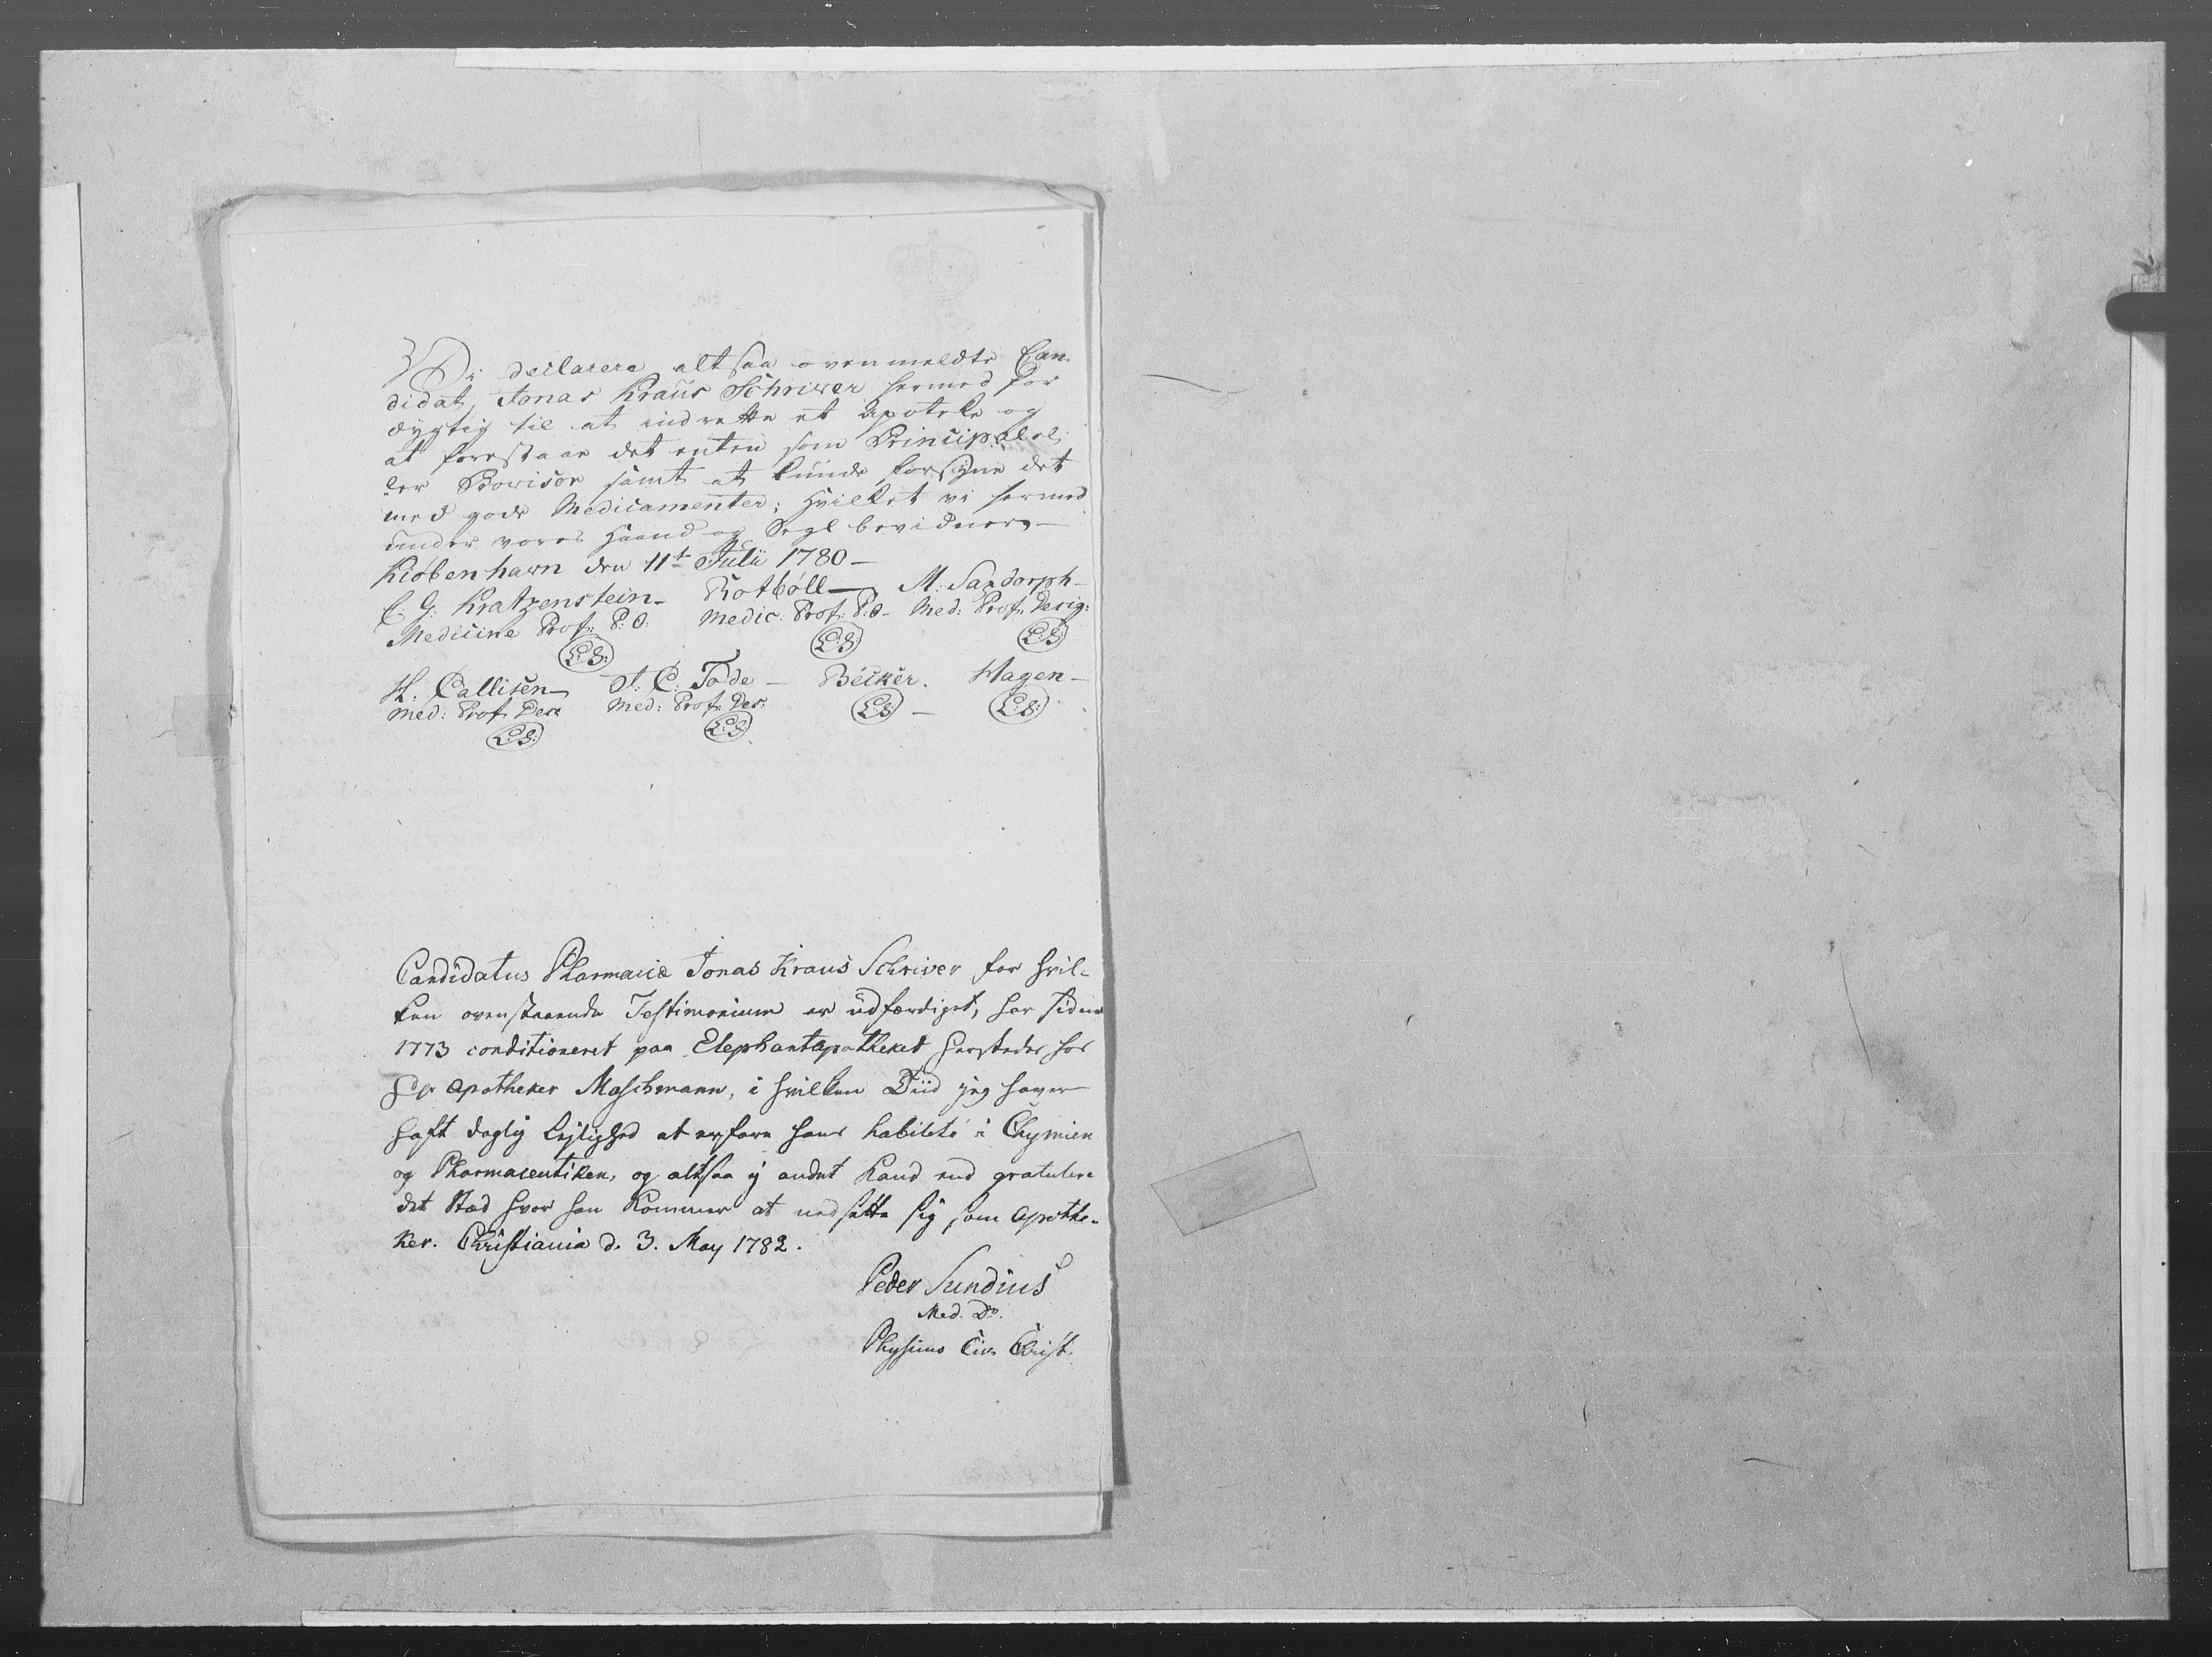 Vi declarere altsaa ovenmeldte Can-
didat, Jonas Kraus Schriver hermed for
dygtig til at indrette et Apoteke og
at forestaae det enten som Principal el-
ler Provisor samt at kunde forsyne det
med gode Medicamenter; hvilket vi hermed
under vores Haand og Segl bevidner,-
Kiøbenhavn den 11t Julii 1780-
C: G: Kratzenstein- Rotbøll- M: Saxtorph-
Medicine Prof: P: O: Medic: Prof: P: O- Med: Prof: Desig:
(L:S:) (L:S) (L:S)
H. Callisen- J: C: Tode- Becker. Hagen-
Med: Prof: Des: Med: Prof: Des:
(L:S:) (L:S) (L:S)- (L:S:)
Candidatus Pharmaciæ Jonas Kraus Schriver for hvil-
ken ovenstaaende Testimonium er udfærdiget, har siden
1773 conditioneret paa Elephantapotheket herstedes hos
Hr Apotheker Maschmann, i hvilken Tiid jeg haver
haft daglig Lejlighed at erfare hans habileté i Chymien
og Pharmaceutiken, og altsaa ej andet kand end gratulere
det Stæd hvor han kommer at nedsætte sig som Apothe-
ker. Christiania d. 3. May 1782.
Peder Sundius
Med. Dr.
Physicus Civ. Christ.